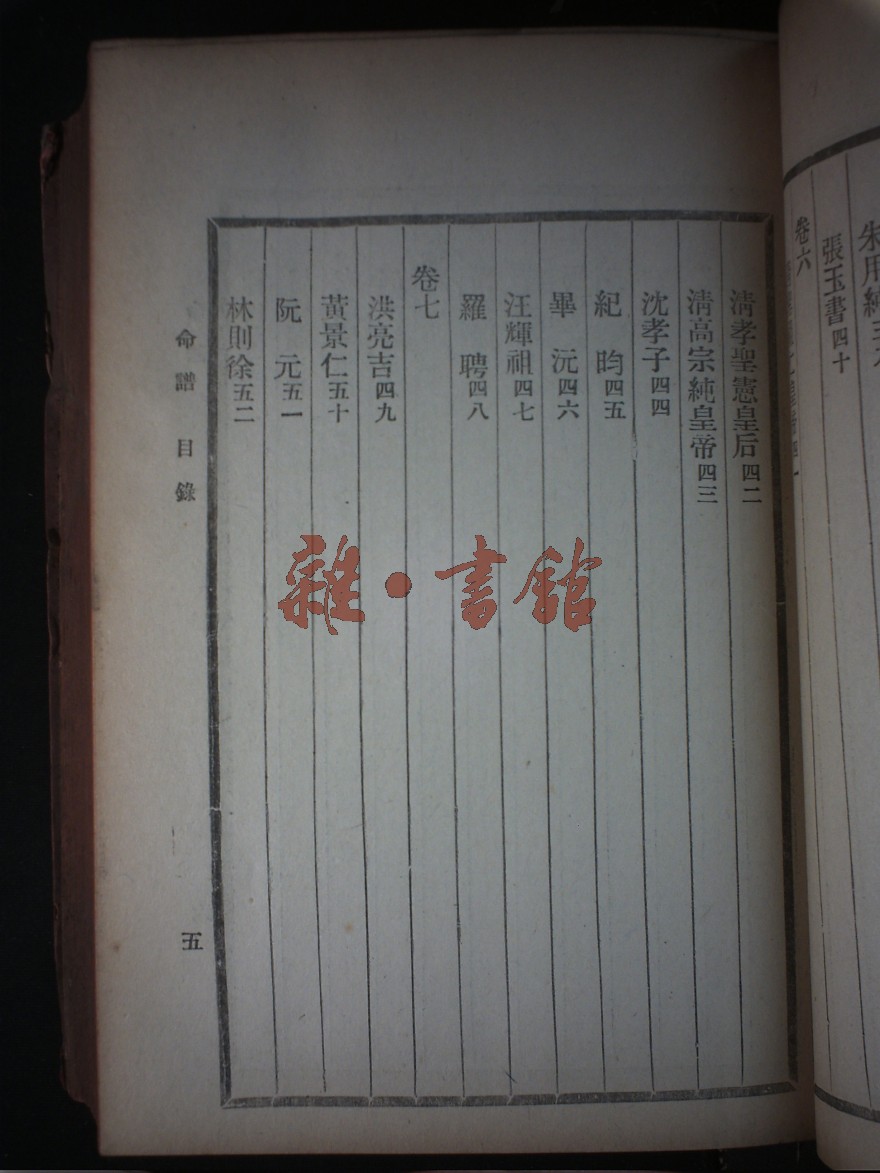 張玉書四十
卷六
清孝聖憲皇后四二
清高宗純皇帝四三
沈孝子四四
紀昀四五
畢沅四六
汪輝祖四七
羅聘四八
卷七
洪亮吉四九
黃景仁五十
阮元五一
林則徐五二
命譜 目錄
五
雜·書館